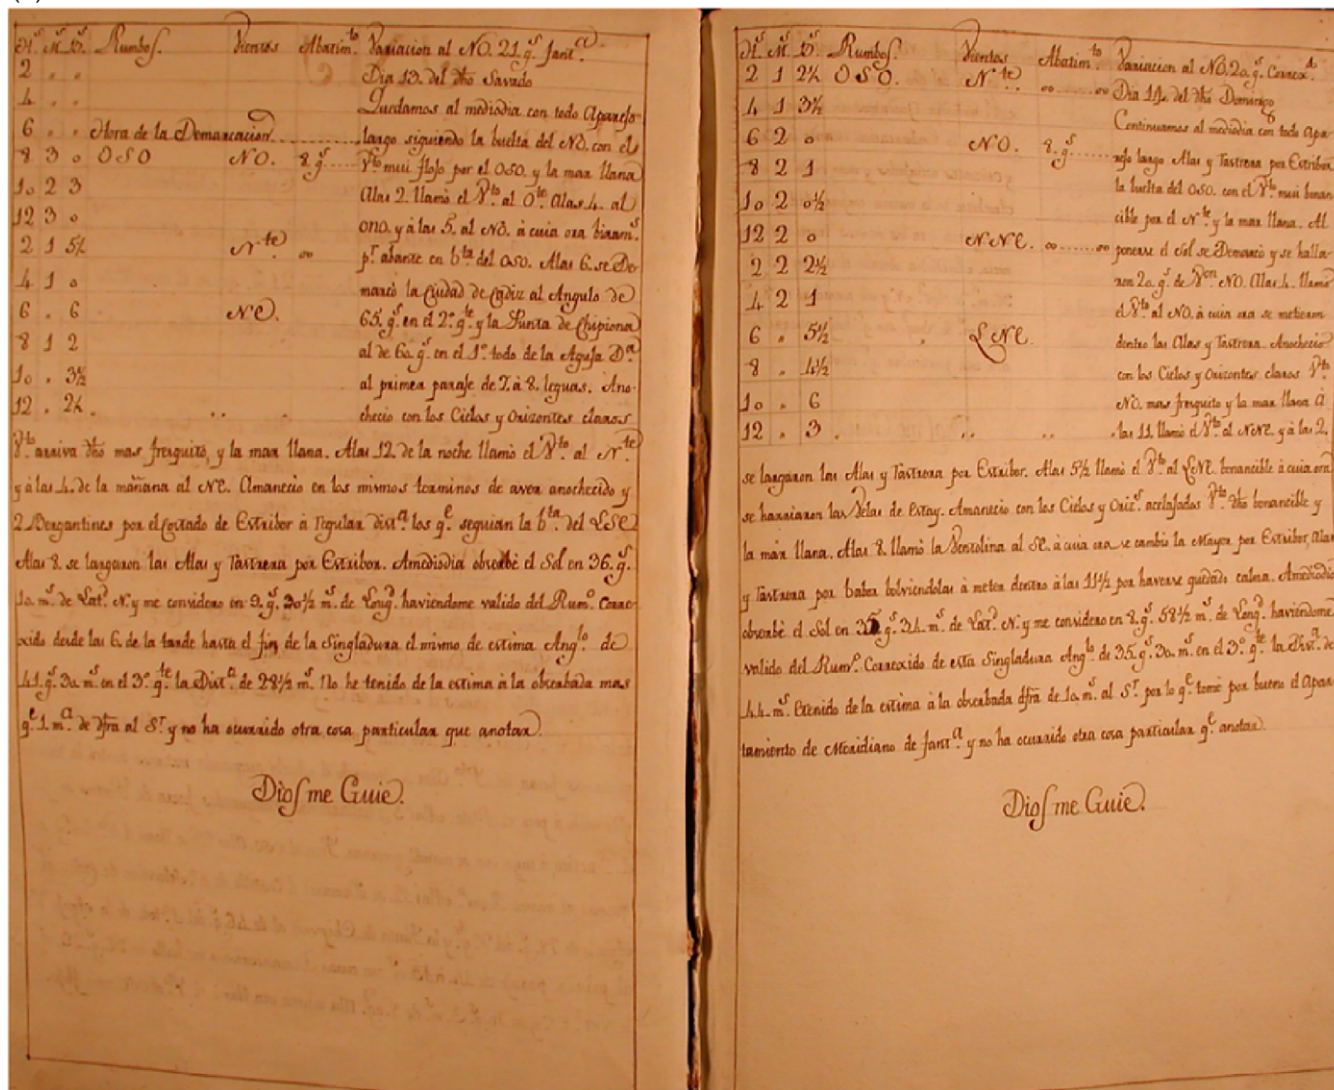 H.s M.s D.s Rumbos. Vientos Abatim.to Variacion al NO. 21 g.s
2 " " Dia 13. del dho Savado
4 " " Quedamos al mediodia con todo Aparejo
6 " " Hora de la Demarcacion largo siguiendo la buelta del NO. con el
8 3 0 OSO NO. 8. g.s V.to mui flojo por el OSO. y la mar llana
10 2 3 Alas 2. llamò el V.to al O.te Alas 4. al
12 3 0 ONO. y à las 5. al NO. à cuia ora biram.s
2 1 5½ N.te oo p.r abante en b.ta del OSO. Alas 6. se De-
4 1 0 marcò la Ciudad de Cadiz al Angulo de
6 " 6 NE. 65. g.s en el 2.º q.te y la Punta de Chipiona
8 1 2 al de 60. g.s en el 1.º todo de la Aguja D.a
10 " 3½ al primer paraje de 7. à 8. leguas. Ano-
12 " 2½ " " " checio con los Cielos y Orizontes claros
V.to arriva dho mas fresquito, y la mar llana. Alas 12. de la noche llamò el V.to al N.te
y à las 4. de la mañana al NE. Amanecio en los mismos terminos de aver anochecido y
2. Bergantines por el Costado de Estribor à regular dist.a los q.e seguian la b.ta del ESE
Alas 8. se largaron las Alas y Rastrera por Estribor. Amediodia obserbè el Sol en 36. g.s
10. m.s de Lat.d N. y me considero en 9. g.s 30½ m.s de Long.d haviendome valido del Rum.º Corre-
xido desde las 6. de la tarde hasta el fin de la Singladura el mismo de estima Ang.lo de
41. g.s 30. m.s en el 3.º q.te la Dist.a de 28½ m.s No he tenido de la estima à la obserbada mas
q.e 1. m.a de dfra al S.r y no ha ocurrido otra cosa particular que anotar
Dios me Guie.
H.s M.s D.s Rumbos. Vientos Abatim.to Variacion al NO. 20. g.s
2 1 2½ OSO. N.te oo oo Dia 14. del dho Domingo
4 1 3½ Continuamos al mediodia con todo Apa-
6 2 0 NO. 8. g.s rejo largo Alas y Rastrera por Estribor
8 2 1 la buelta del OSO. con el V.to mui bonan-
10 2 0½ cible por el N.te y la mar llana. Al
12 2 0 NNE. oo oo ponerse el Sol se Demarcò y se halla-
2 2 2½ ron 20. g.s de V.on NO. Alas 4. llamò
4 2 1 el V.to al NO. à cuia ora se metieron
6 " 5½ " ENE. dentro las Alas y Rastrera. Anochecio
8 " 4½ con los Cielos y Orizontes claros V.to
10 " 6 NO. mas fresquito y la mar llana à
12 " 3 " " " las 11. llamò el V.to al NNE. y à las 2.
se largaron las Alas y Rastrera por Estribor. Alas 5½ llamò el V.to al ENE. bonancible à cuia ora
se harriaron las Velas de Estay. Amanecio con los Cielos y Oriz.s acelajados V.to dho bonancible y
la mar llana. Alas 8. llamò la Ventolina al SE. à cuia ora se cambiò la Mayor por Estribor, Alas
y Rastrera por babor bolviendolas à meter dentro à las 11½ por haverse quedado calma. Amediodia
obserbè el Sol en 35. g.s 34. m.s de Lat.d N. y me considero en 8. g.s 58½ m.s de Long.d haviendome
valido del Rum.º Correxido de esta Singladura Ang.lo de 35. g.s 30. m.s en el 3.º q.te la Dist.a de
44. m.s Etenido de la estima à la obserbada dfra de 10. m.s al S.r por lo q.e tomè por bueno el Apar-
tamiento de Meridiano de fant.a y no ha ocurrido otra cosa particular q.e anotar
Dios me Guie.